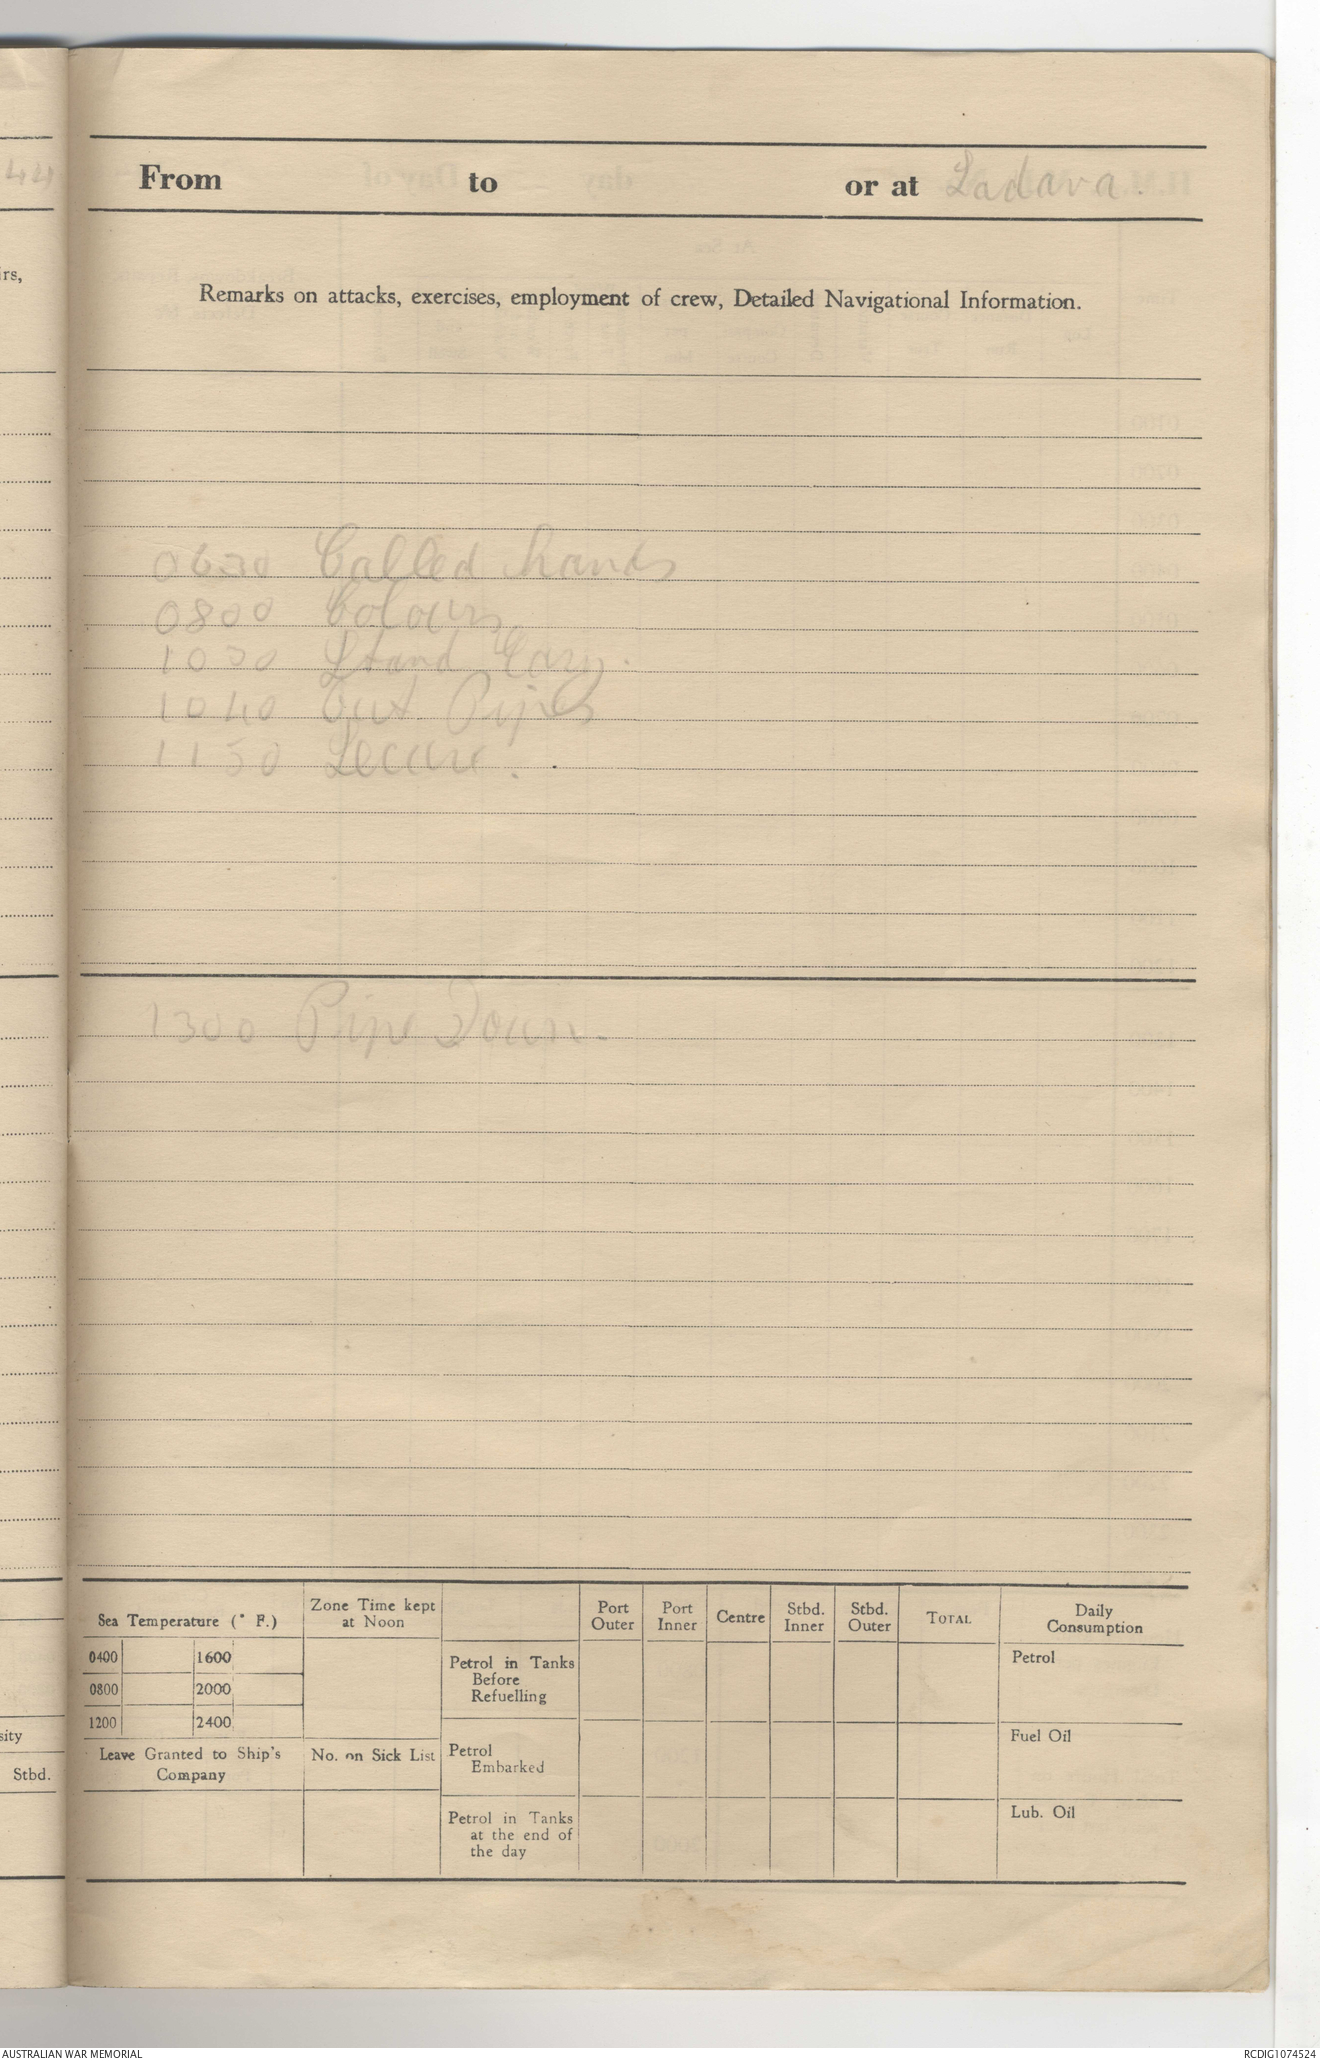 44
From to or at Ladava.
irs,
Remarks on attacks, exercises, employment of crew, Detailed Navigational Information.
0630 Called hands
0800 Colours
1030 Stand Easy.
1040 Out Pipes
1150 Secure.
1300 Pipe Down.
Sea Temperature (° F.)
0400 1600
0800 2000
1200 2400
Leave Granted to Ship's
Company
Zone Time kept
at Noon
No. on Sick List
Port
Outer
Port
Inner
Centre
Stbd.
Inner
Stbd.
Outer
TOTAL
Petrol in Tanks
Before
Refuelling
Petrol
Embarked
Petrol in Tanks
at the end of
the day
Daily
Consumption
Petrol
Fuel Oil
Lub. Oil
sity
Stbd.
AUSTRALIAN WAR MEMORIAL
RCDIG1074524